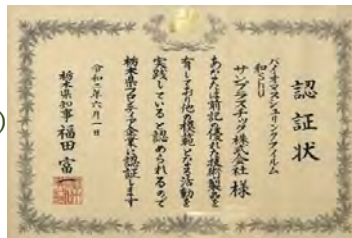 認証状
バイオマスシュリンクフィルム
和shu
サンプラスチック株式会社 様
あなたは前記の優れた技術製品を
有しており他の模範となる活動を
実践していると認められるので
栃木県フロンティア企業に認証します
令和二年六月一日
栃木県知事 福田富一